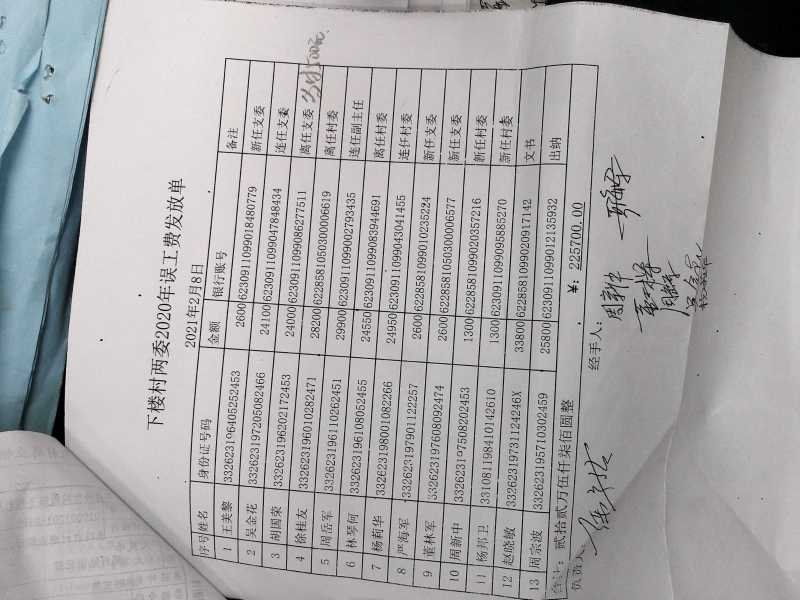 下楼村两委2020年误工费发放单
2021年2月8日
序号 姓名 身份证号码 金额 银行账号 备注
1 王美黎 332623196405252453 2600 6230911099018480779 新任支委
2 吴金花 332623197205082466 24100 6230911099047848434 连任支委
3 胡国荣 332623196202172453 24000 6230911099086277511 离任支委
4 徐桂友 332623196010282471 28200 6228581050300006619 离任村委
5 周岳军 332623196110262451 29900 6230911099002793435 连任副主任
6 林琴何 332623196108052455 24550 6230911099083944691 离任村委
7 杨莉华 332623198001082266 24950 6230911099043041455 连任村委
8 严海军 332623197901122257 2600 6228581099010235224 新任支委
9 董林军 332623197608092474 2600 6228581050300006577 新任支委
10 周新中 332623197508202453 1300 6228581099020357216 新任村委
11 杨邦卫 331081198410142610 1300 6230911099095885270 新任村委
12 赵晓敏 33262319731124246X 33800 6228581099020917142 文书
13 周宗波 332623195710302459 25800 6230911099012135932 出纳
合计: 贰拾贰万伍仟柒佰圆整 ¥: 225700.00
负责人: 经手人: